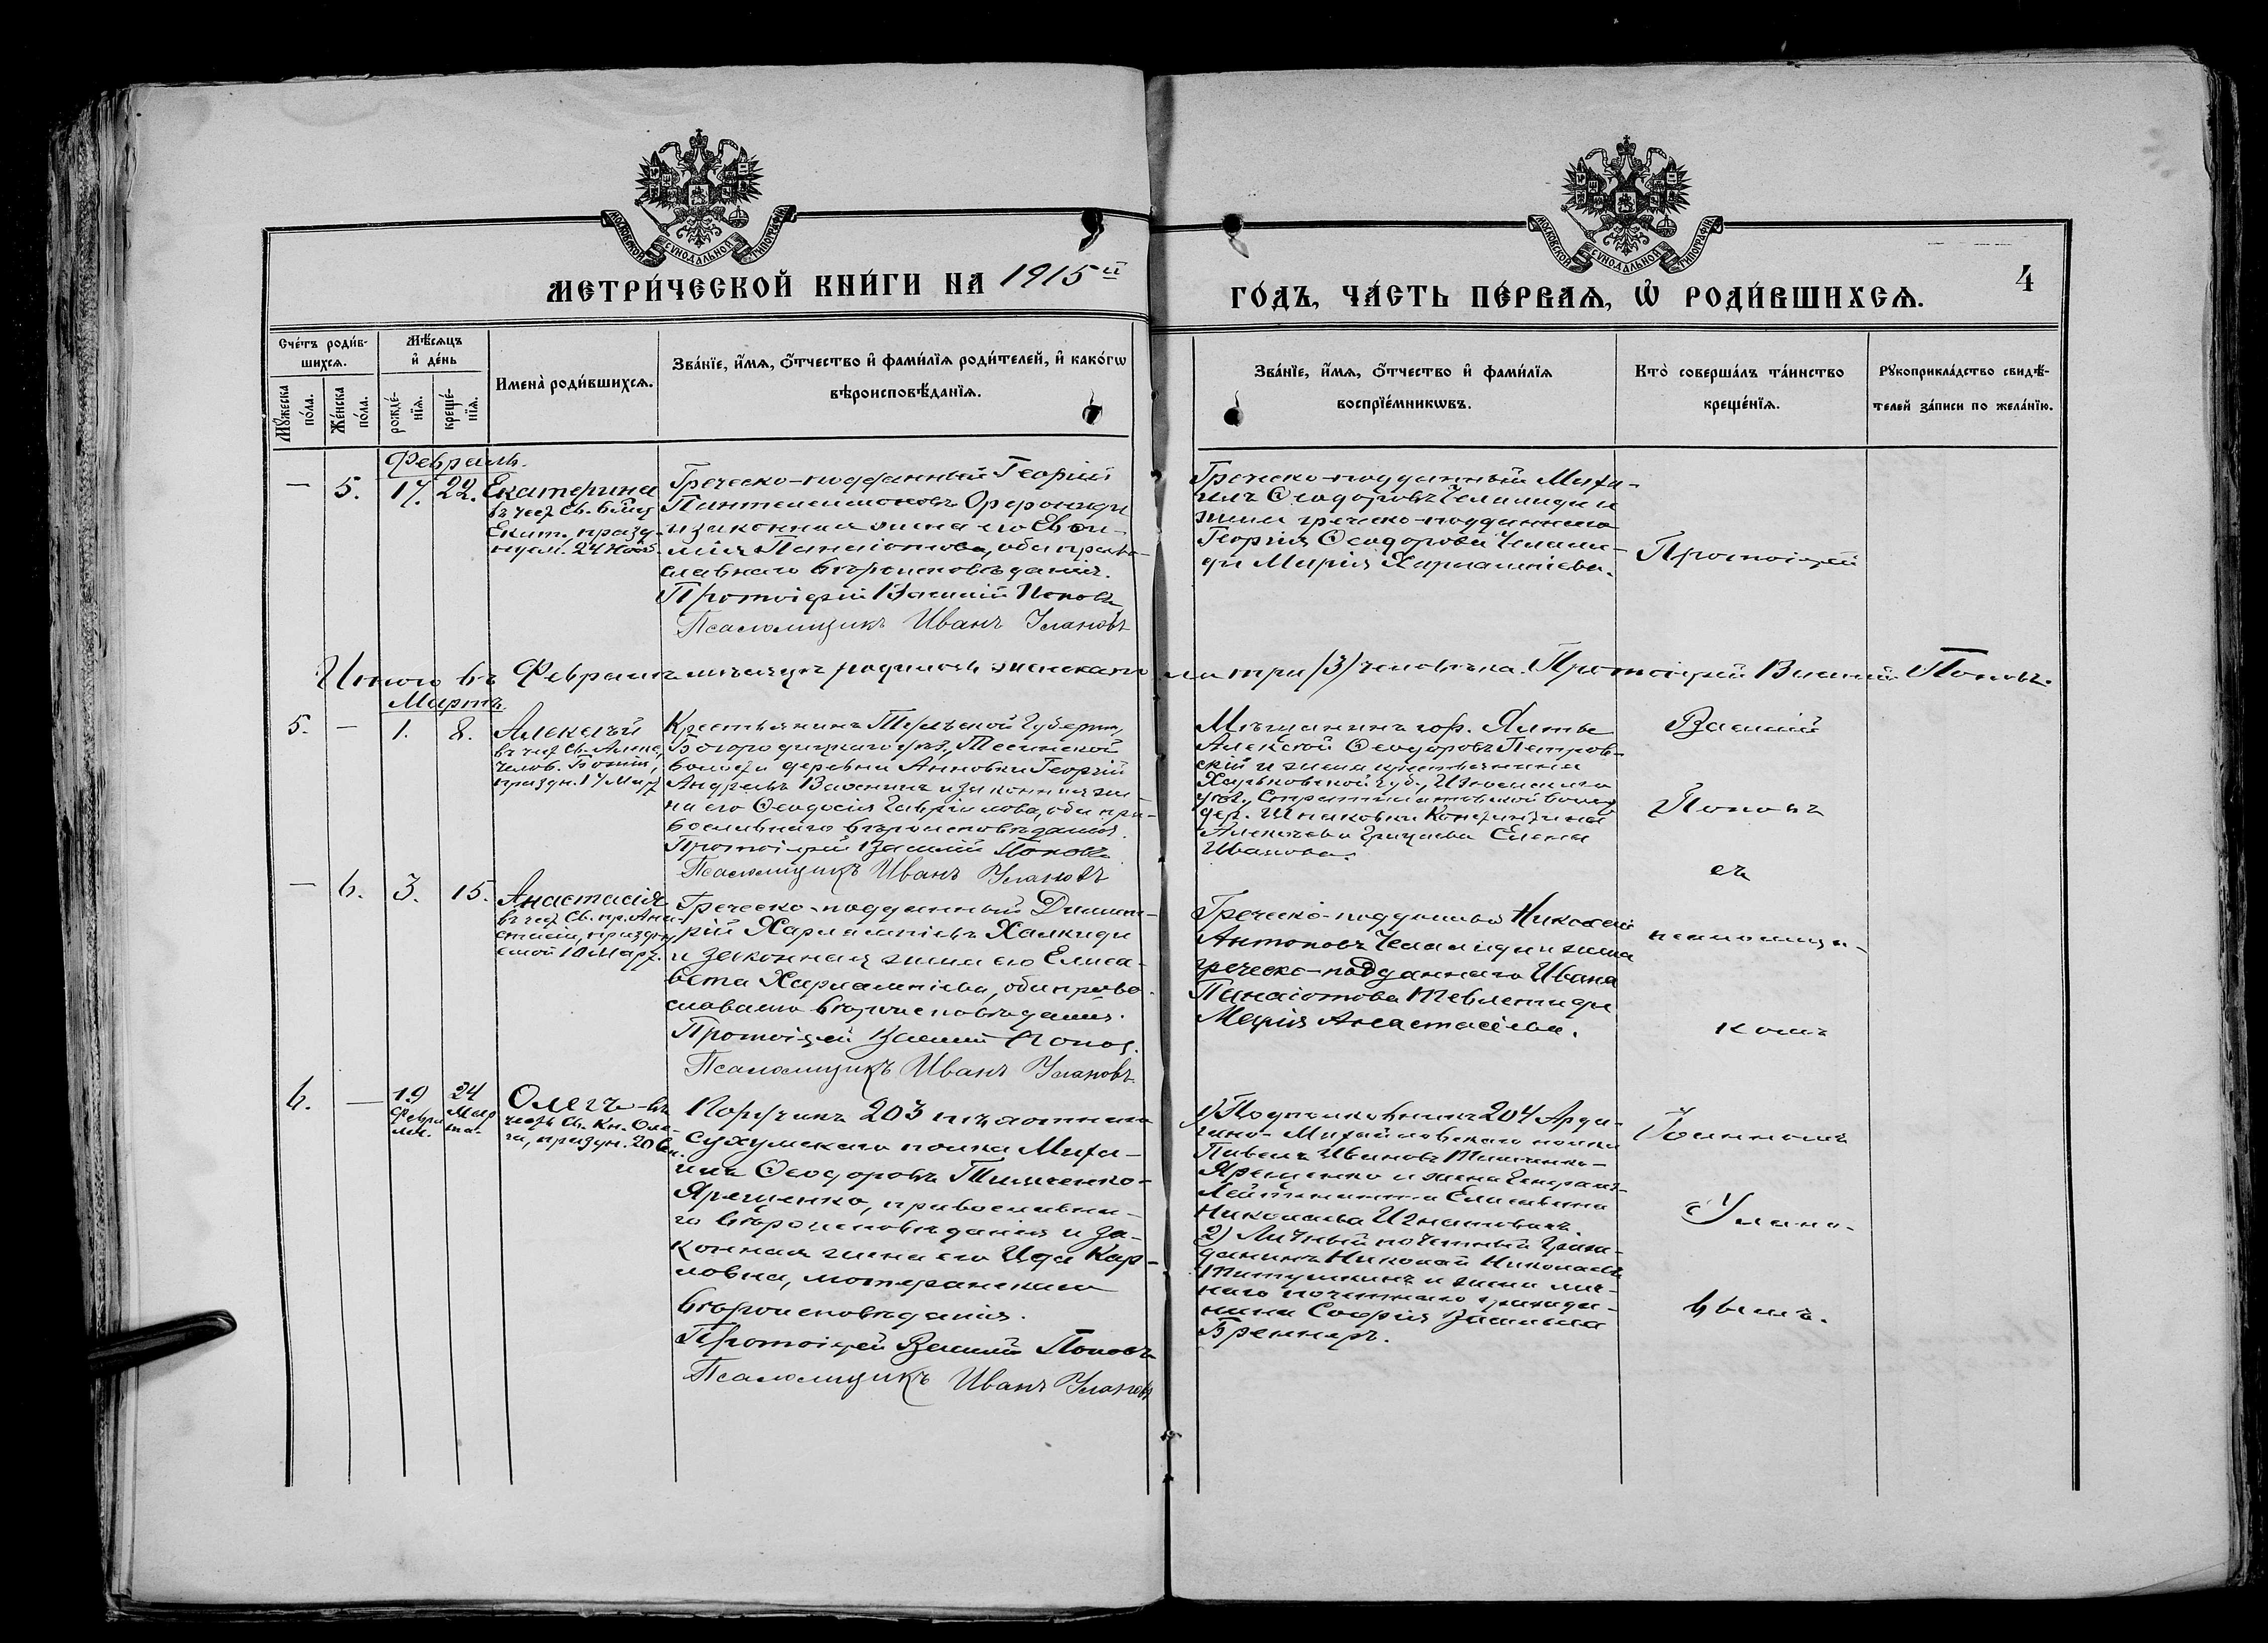 МОСКОВСКОЙ СУНОДАЛЬНОЙ ТИПОГРАФІИ
МОСКОВСКОЙ СУНОДАЛЬНОЙ ТИПОГРАФІИ
МЕТРИ́ЧЕСКОЙ КНИ́ГИ НА 1915й
ГО́ДЪ, ЧА́СТЬ ПЕ́РВАѦ, Ѡ҆ РОДИ́ВШИХСѦ.
4
Сче́тъ роди́в-
шихсѧ.
Мꙋ́жеска
по́ла.
Же́нска
по́ла.
Мѣ́сѧцъ
и҆ де́нь
рожде́-
нїѧ.
креще́-
нїѧ.
Имена̀ роди́вшихсѧ.
Зва́нїе, и҆́мѧ, ѻ҆́тчество и҆ фами́лїѧ роди́телей, и҆ како́гѡ
вѣроисповѣ́данїѧ.
Зва́нїе, и҆́мѧ, ѻ҆́тчество и҆ фами́лїѧ
воспрїе́мникѡвъ.
Кто̀ соверша́лъ та́инство
креще́нїѧ.
Рꙋкоприкла́дство свидѣ́-
телей за́писи по жела́нїю.
Февраль.
— 5. 17. 22. Екатерина
въ чест. Св. Влмц
Екат., празд-
нуем. 24 Нояб.
Греческо-подданный Георгій
Пантелеимоновъ
и законная жена его Евѳи-
мія Панаіотова, оба право-
славнаго вѣроисповѣданія.
Протоіерей Василій Поповъ
Псаломщикъ Иванъ Улановъ
Греческо-подданный Миха-
илъ Ѳеодоровъ Челамиди и
жена греческо-подданнаго
Георгія Ѳеодорова Челами-
ди Марія Харлампіева.
Итого въ Февралѣ мѣсяцѣ родилось женскаго пола три /3/ человѣка. Протоіерей Василій Поповъ.
Мартъ.
5. — 1. 8. Алексѣй
въ чест. Св. Алекс.
Челов. Божія,
праздн. 17 Март.
Крестьянинъ Тульской Губерніи,
Богородицкаго уѣз.,
волости деревни Анновки Георгій
Андреевъ и законная же-
на его Ѳеодосія Гавріилова, оба пра-
вославнаго вѣроисповѣданія.
Протоіерей Василій Поповъ
Псаломщикъ Иванъ Улановъ
Мѣщанинъ гор. Ялты
Алексѣй Ѳеодоровъ Петров-
скій и жена крестьянина
Харьковской губ., Изюмскаго
уѣз., волост.
дер. Константина
Алексѣева Елена
Иванова.
— 6. 3. 15. Анастасія
въ чест. Св. пр. Ана-
стасіи, праздну-
емой 10 Март.
Греческо-подданный Димит-
рій Харлампіевъ Халкиди
и законная жена его Елиса-
вета Харлампіева, оба право-
славнаго вѣроисповѣданія.
Протоіерей Василій Попов.
Псаломщикъ Иванъ Улановъ
Греческо-подданный Николай
Антоновъ Челамиди и жена
греческо-подданнаго Ивана
Панаіотова
Марія Анастасіева.
6. — 19 Февраля. 24 Марта. Олегъ — въ
честь Св. Кн. Оле-
га, праздн. 20 Сен.
Поручикъ 203 пѣхотнаго
Сухумскаго полка Миха-
илъ Ѳеодоровъ Тимченко-
Ярещенко, православна-
го вѣроисповѣданія и за-
конная жена его Ида Кар-
ловна, лютеранскаго
вѣроисповѣданія.
Протоіерей Василій Поповъ
Псаломщикъ Иванъ Улановъ
1) Подполковникъ 204 Арда-
гано-Михайловскаго полка
Павелъ Ивановъ Тимченко-
Ярещенко и жена Генералъ-
Лейтенанта Елисавета
Николаева Игнатовичъ.
2) Личный почетный граж-
данинъ Николай Николаевъ
и жена лич-
наго почетнаго гражда-
нина Софія
Бреннеръ.
Протоіерей
Василій
Поповъ
съ
псаломщи-
комъ
Іоанномъ
Улано-
вымъ.